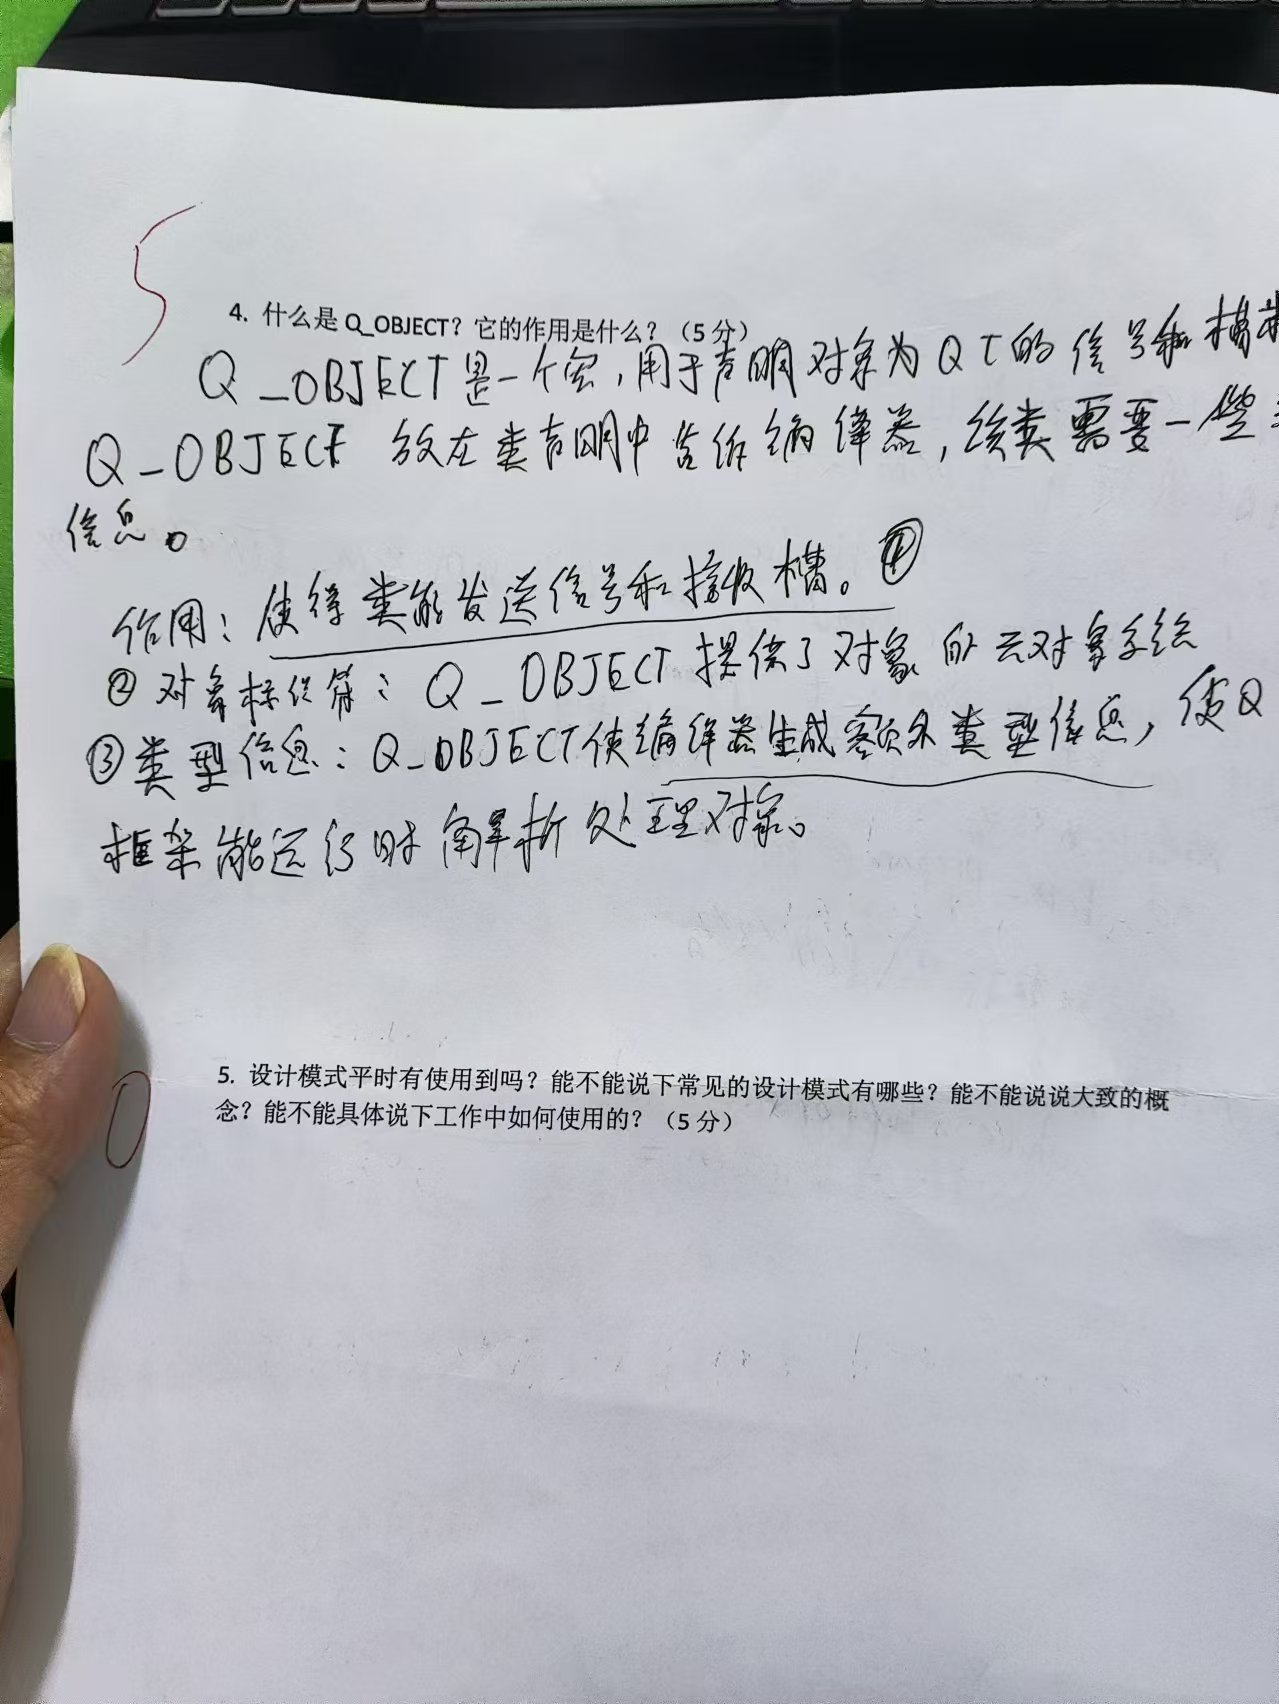 5
4. 什么是 Q_OBJECT？它的作用是什么？（5 分）
Q_OBJECT是一个宏，用于声明对象为QT的信号和槽
Q_OBJECT 放在类声明中告诉编译器，该类需要一些
信息。
作用：使得类能发送信号和接收槽。①
② 对象标识符：Q_OBJECT提供了对象的元对象系统
③类型信息：Q_OBJECT使编译器生成额外类型信息，使Q
框架能运行时解析处理对象。
0
5. 设计模式平时有使用到吗？能不能说下常见的设计模式有哪些？能不能说说大致的概
念？能不能具体说下工作中如何使用的？（5 分）